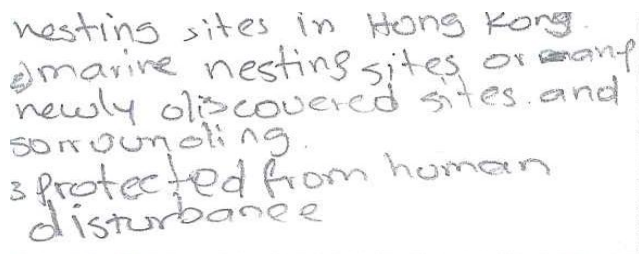 nesting sites in Hong Kong.
2) marine nesting sites or many
newly discovered sites. and
sorrounding.
3 protected from human
disturbance